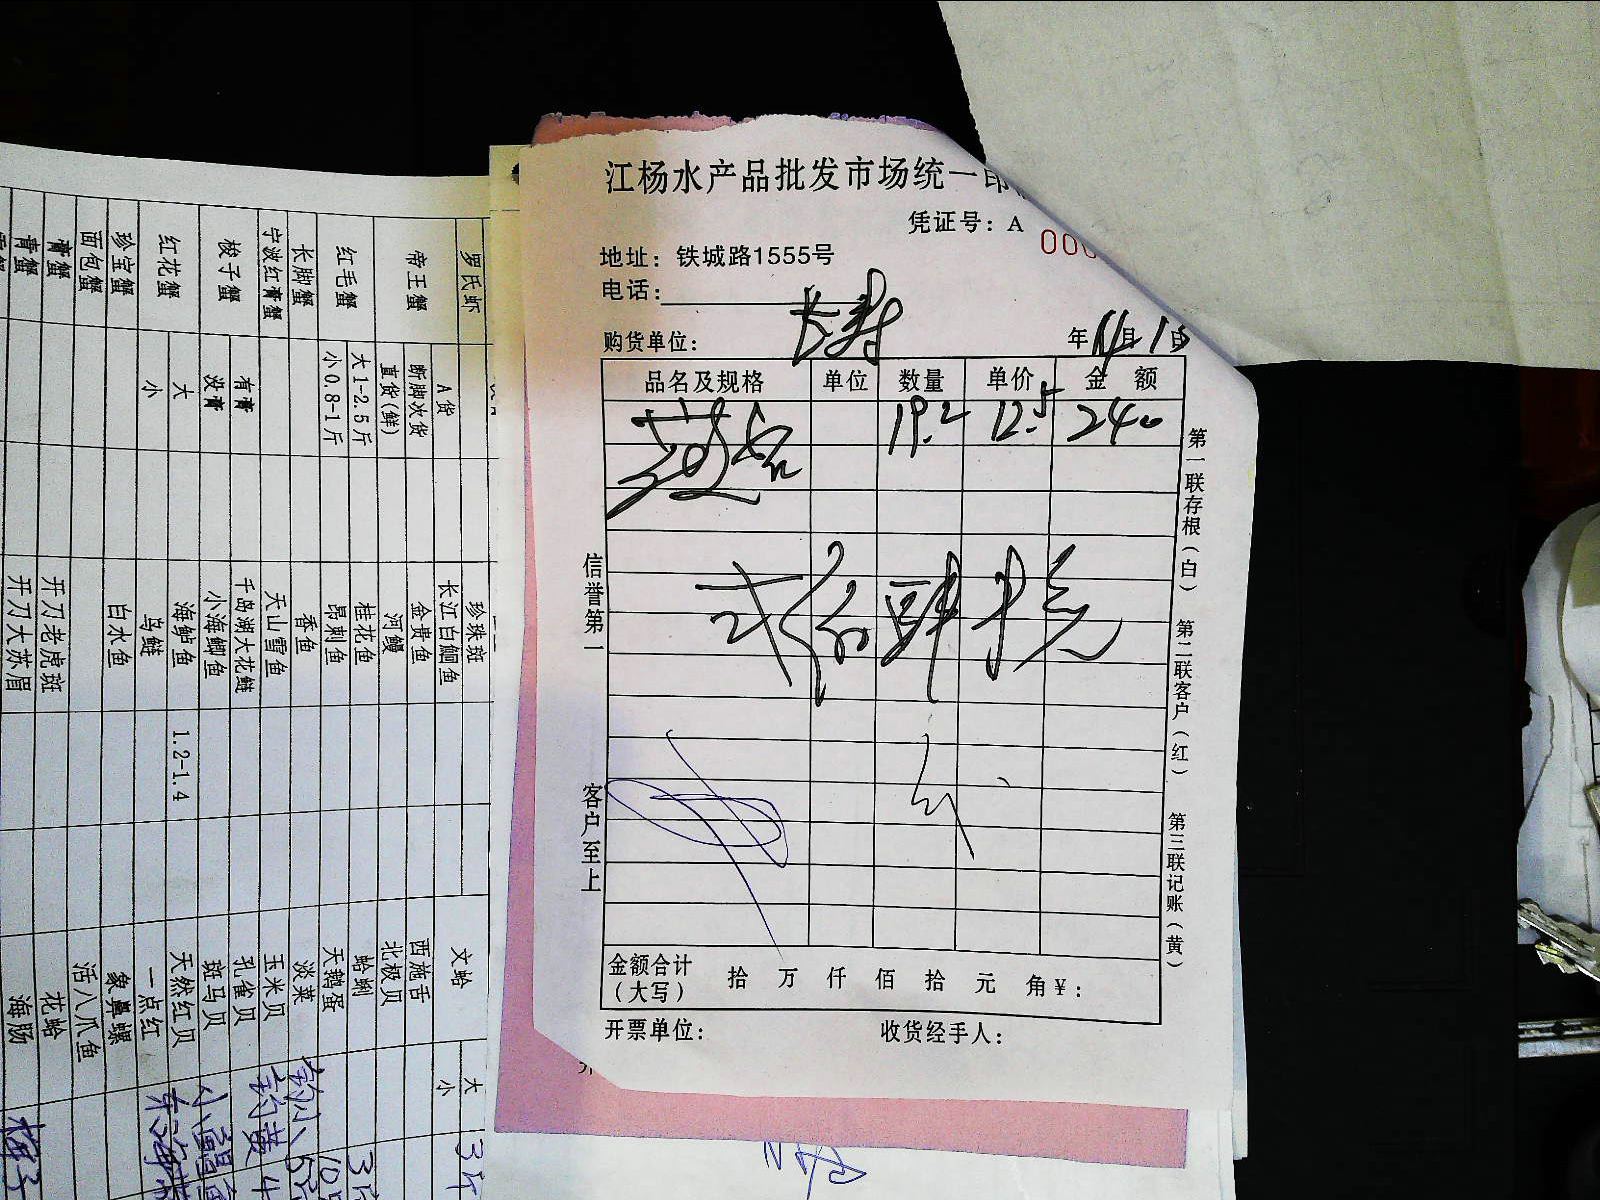 江杨水产品批发市场统一印
凭证号：A 000
地址：铁城路1555号
电话：
购货单位：长寿 年11月1日
品名及规格 单位 数量 单价 金额
19.2 12.5 240
贰佰肆拾元
金额合计（大写） 拾 万 仟 佰 拾 元 角￥：
开票单位： 收货经手人：
信誉第一 客户至上
第一联存根（白） 第二联客户（红） 第三联记账（黄）
罗氏虾
帝王蟹 A货
断脚次货
直货(鲜)
红毛蟹 大1-2.5斤
小0.8-1斤
长脚蟹
宁波红膏蟹
梭子蟹 有膏
没膏
红花蟹 大
小
珍宝蟹
面包蟹
膏蟹
青蟹
珍珠斑
长江白鮰鱼
金贵鱼
河鳗
桂花鱼
昂刺鱼
香鱼
天山雪鱼
千岛湖大花鲢
小海鲫鱼
海鲈鱼 1.2-1.4
乌鲢
白水鱼
开刀老虎斑
开刀大苏眉
文蛤 大
小
西施舌
北极贝
蛤蜊
天鹅蛋
淡菜
玉米贝
孔雀贝
斑马贝
天然红贝
一点红
象鼻螺
活八爪鱼
花蛤
海肠